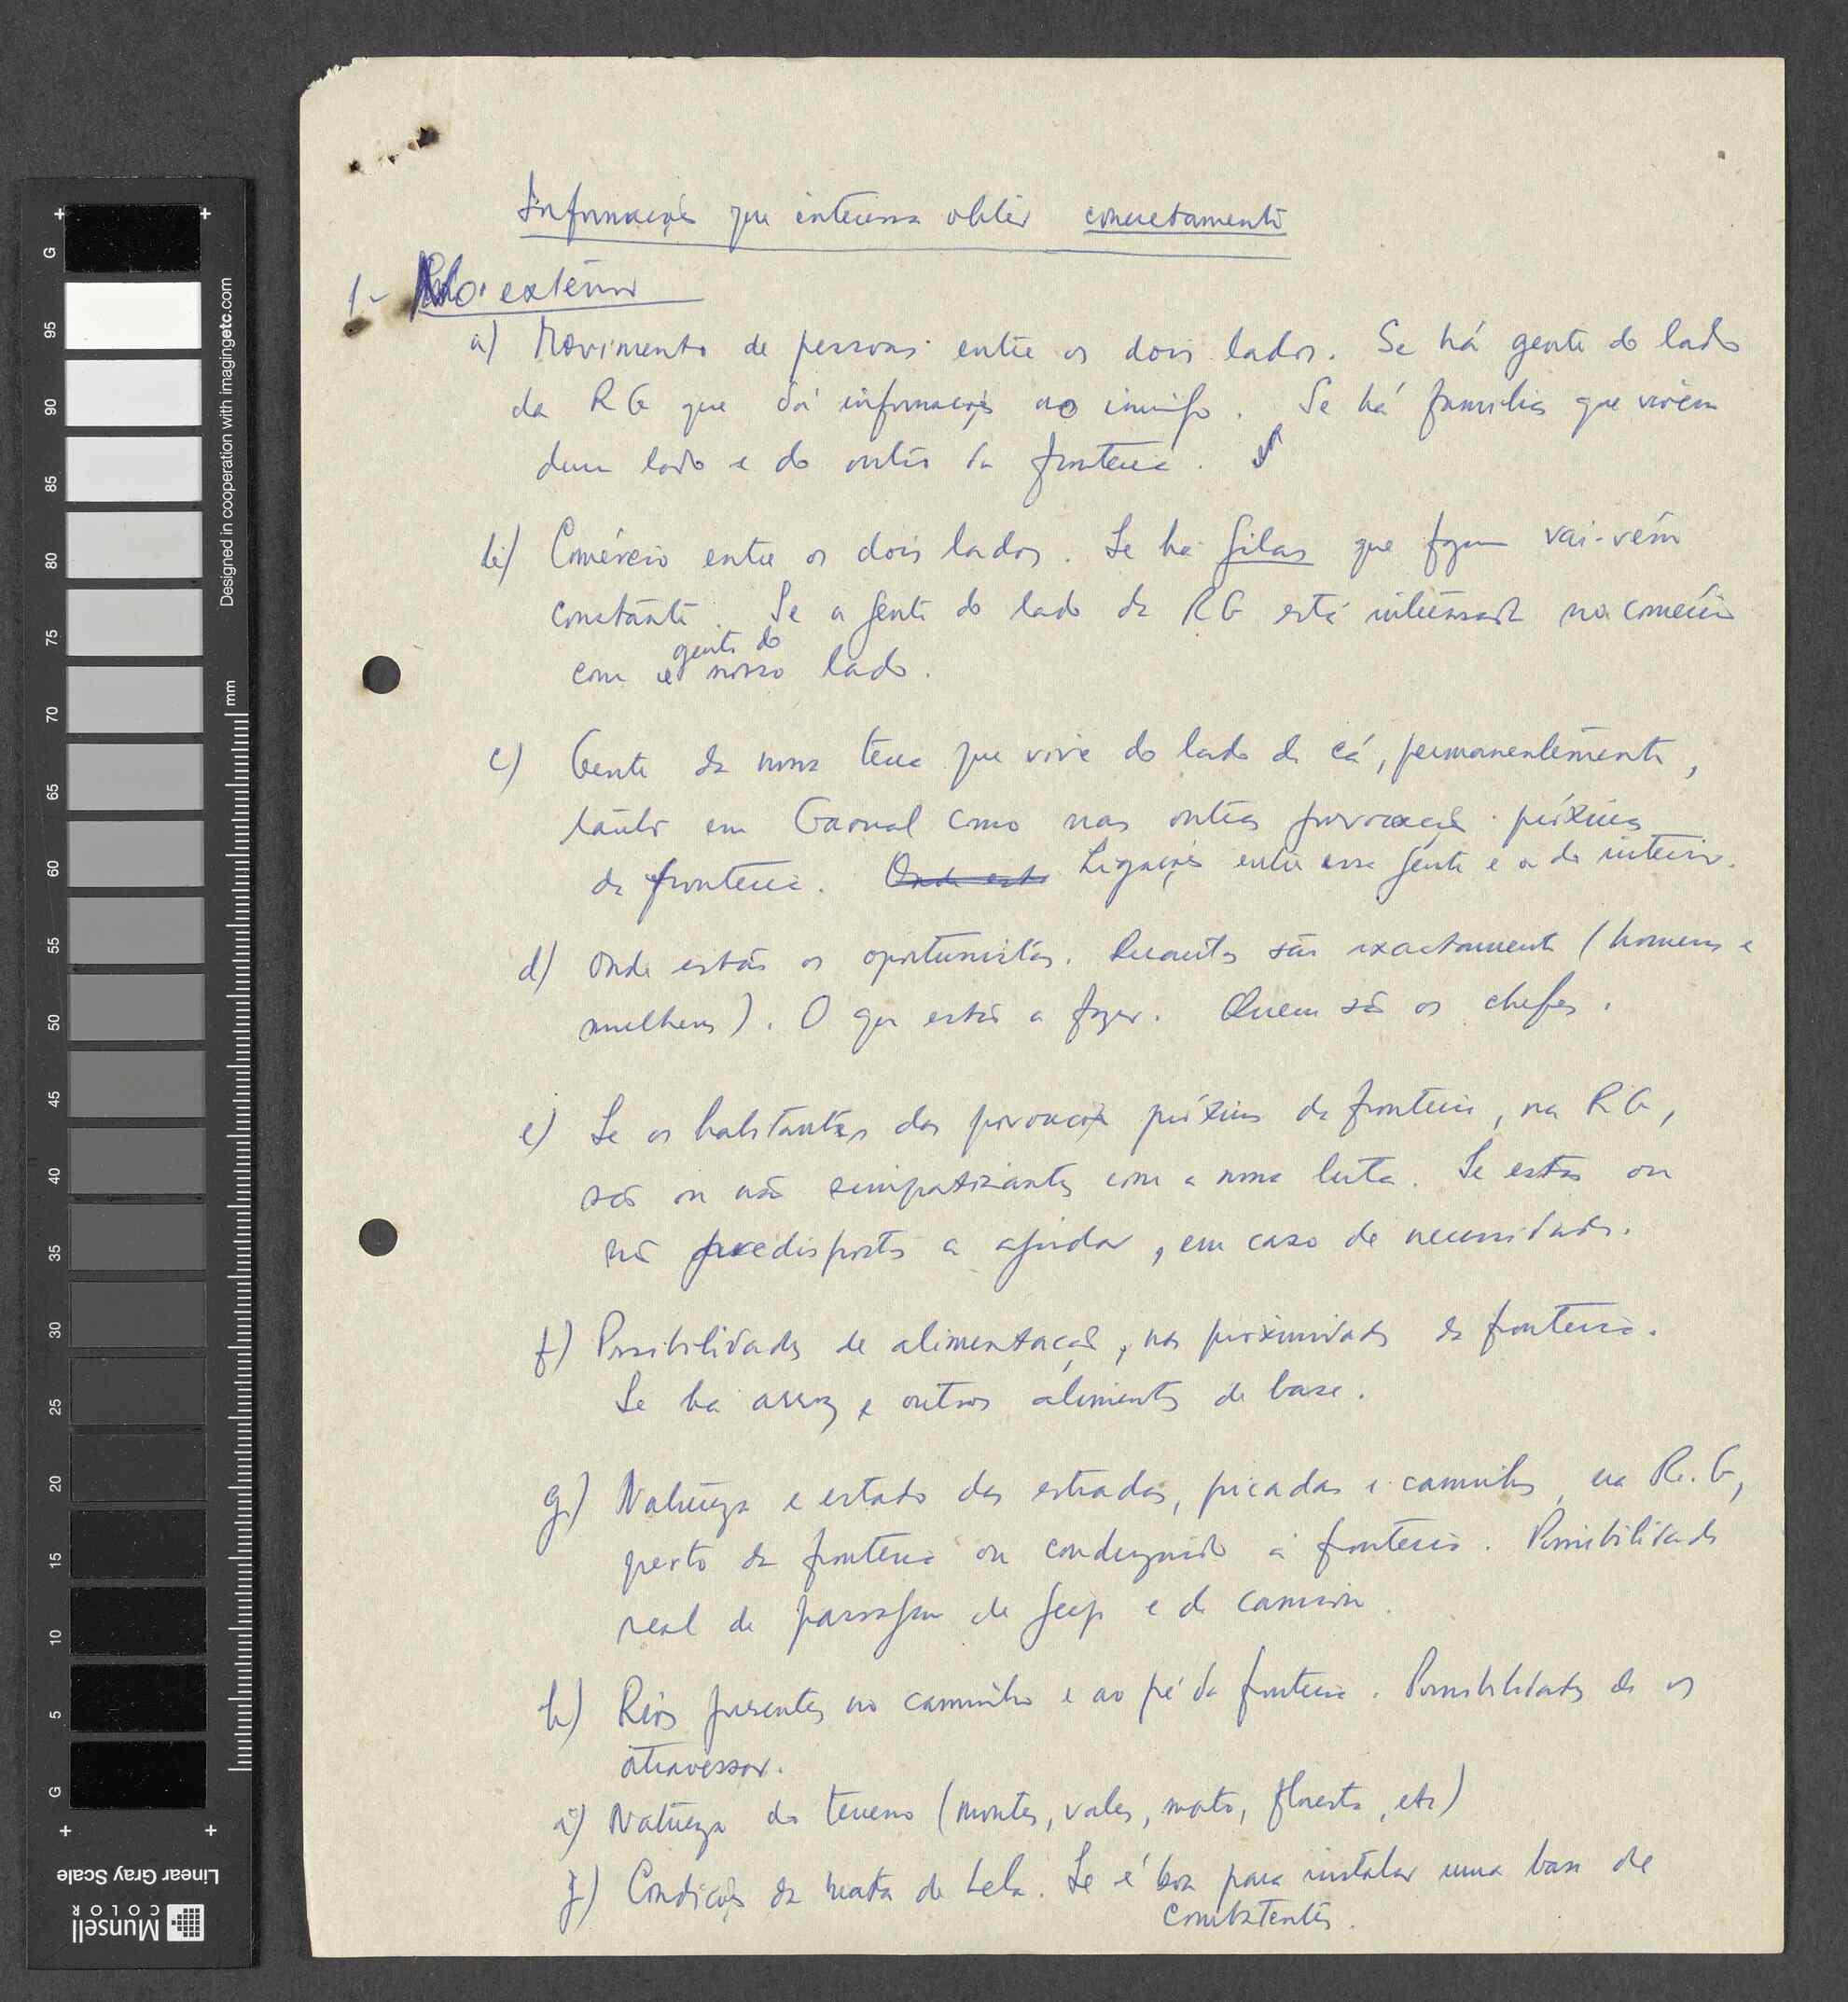 Informações que interessa obter concretamente
1- No exterior
a) Movimento de pessoas entre os dois lados. Se há gente do lado
da RG que dá informações ao inimigo. Se há famílias que vivem
dum lado e do outro da fronteira.
b) Comércio entre os dois lados. Se há gilas que fazem vai-vém
constante. Se a gente do lado da RG está interessada no comércio
gente do
com nosso lado.
c) Gente da nossa terra que vive do lado de cá, permanentemente,
tanto em Gaoual como nas outras povoações próximas
da fronteira. Onde está Ligações entre essa gente e a do interior.
d) Onde estão os oportunistas. Quantos são exactamente (homens e
mulheres). O que estão a fazer. Quem são os chefes.
e) Se os habitantes das povoações próximas da fronteira, na RG,
são ou não simpatizantes com a nossa luta. Se estão ou
não predispostos a ajudar, em caso de necessidade.
f) Possibilidades de alimentação, nas proximidades da fronteira.
Se há arroz e outros alimentos de base.
g) Natureza e estado das estradas, picadas e caminhos, na R.G,
perto da fronteira ou conduzindo à fronteira. Possibilidade
real de passagem de jeep e de camion.
h) Rios presentes no caminho e ao pé da fronteira. Possibilidades de os
atravessar.
i) Natureza do terreno (montes, vales, mato, floresta, etc)
j) Condições da mata de Lela. Se é boa para instalar uma base de
combatentes.
G 95 90 85 80 75 70 65 60 55 50 45 40 35 30 25 20 15 10 5 G
Designed in cooperation with imagingetc.com
mm
Linear Gray Scale
Munsell
COLOR